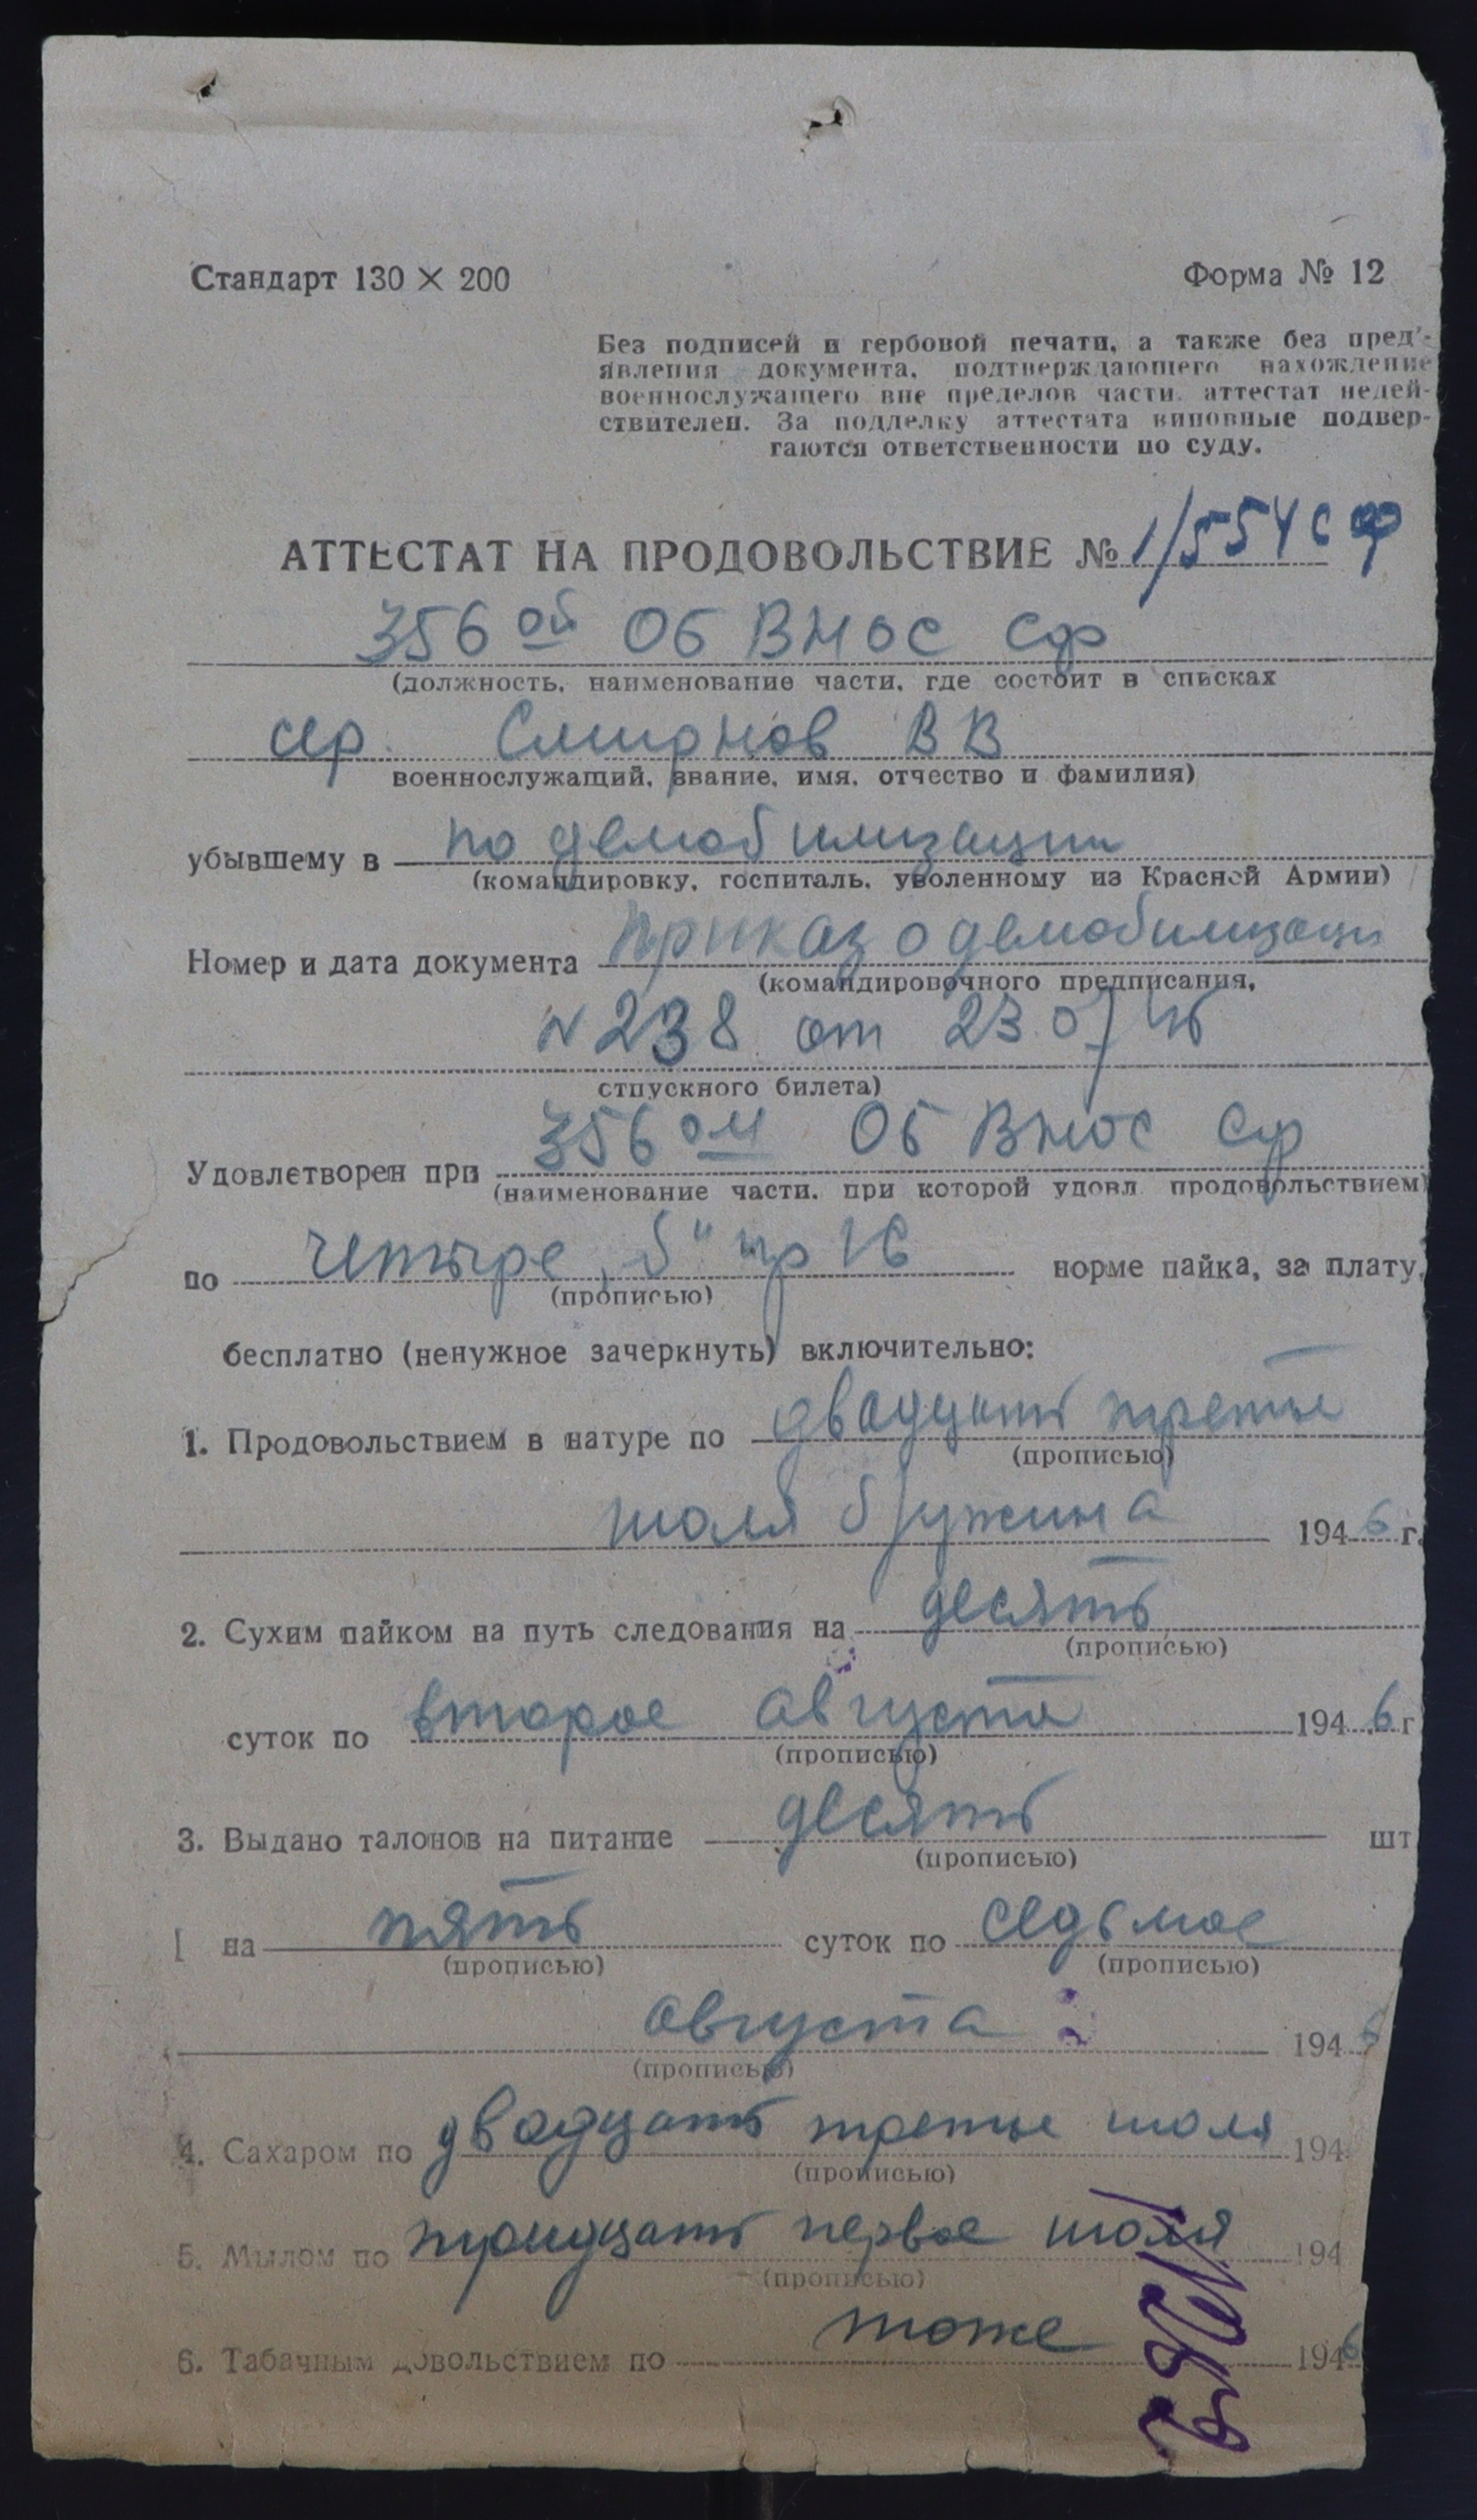 Стандарт 130 × 200
Форма № 12
Без подписей и гербовой печати, а также без пред'-
явления документа, подтверждающего нахождение
военнослужащего вне пределов части, аттестат недей-
ствителен. За подделку аттестата виновные подвер-
гаются ответственности по суду.
АТТЕСТАТ НА ПРОДОВОЛЬСТВИЕ № 1/5546 ф
356 ой ОБ ВНОС Сф
(должность, наименование части, где состоит в списках
сер. Смирнов В В
военнослужащий, звание, имя, отчество и фамилия)
убывшему в по демобилизации
(командировку, госпиталь, уволенному из Красной Армии)
Номер и дата документа приказ о демобилизаци
(командировочного предписания,
N 238 от 23 07 46
отпускного билета)
Удовлетворен при 356 ом ОБ ВНОС Сф
(наименование части, при которой удовл. продовольствием)
по четыре „б" пр 16 норме пайка, за плату,
(прописью)
бесплатно (ненужное зачеркнуть) включительно:
1. Продовольствием в натуре по двадцать третье
(прописью)
июля б/ужина 1946 г.
2. Сухим пайком на путь следования на десять
(прописью)
суток по второе августа 1946 г
(прописью)
3. Выдано талонов на питание десять шт
(прописью)
на пять суток по седьмое
(прописью) (прописью)
августа 1946
(прописью)
4. Сахаром по двадцать третье июля 194
(прописью)
5. Мылом по тридцать первое июля 194
(прописью)
6. Табачным довольствием по тоже 1946